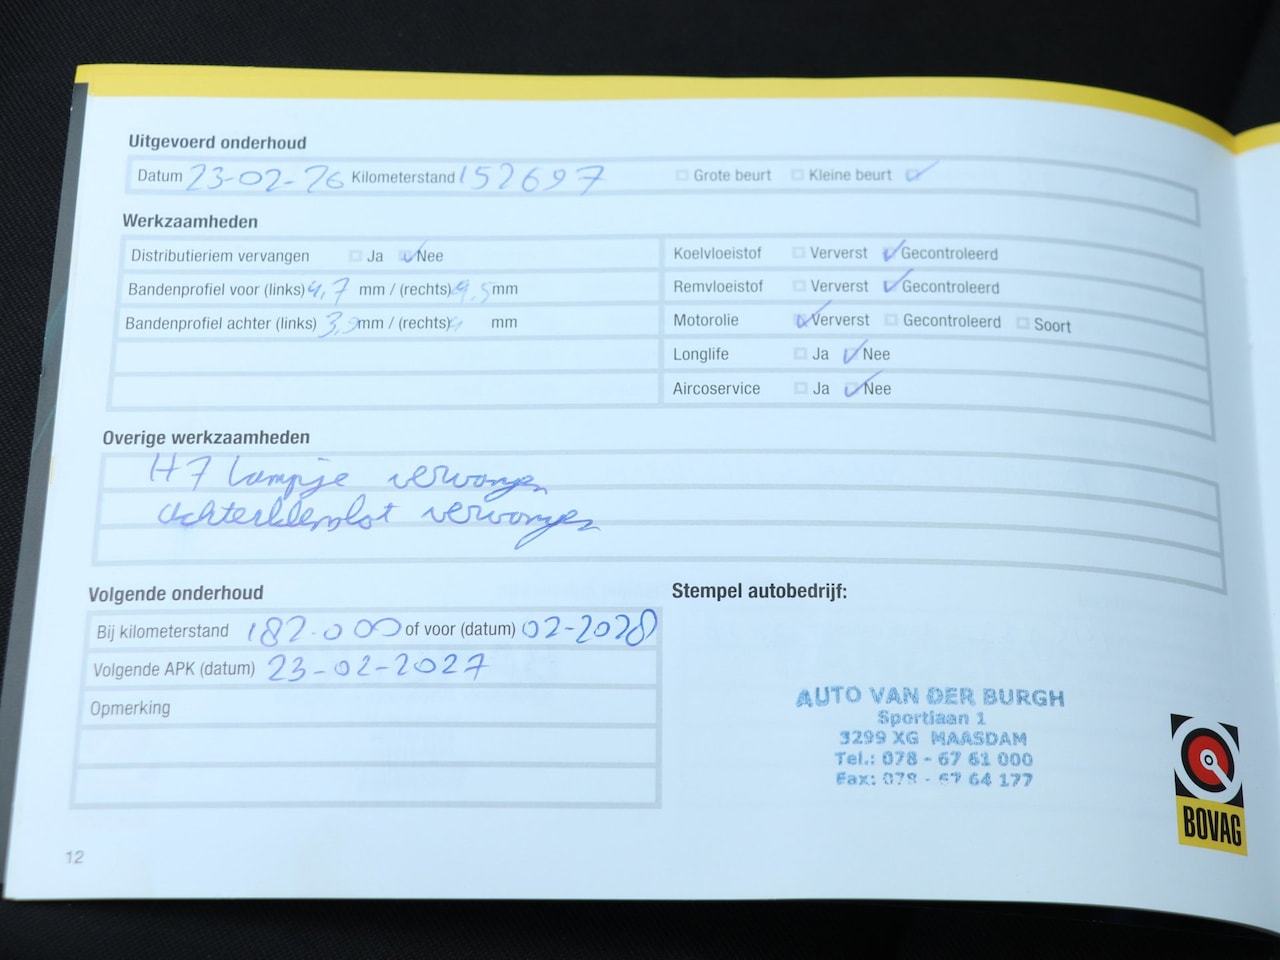 Uitgevoerd onderhoud
Datum 23-02-26 Kilometerstand 152697 Grote beurt Kleine beurt
Werkzaamheden
Distributieriem vervangen Ja Nee
Bandenprofiel voor (links) 4,7 mm / (rechts) 4,5 mm
Bandenprofiel achter (links) 3,9 mm / (rechts) mm
Koelvloeistof Ververst Gecontroleerd
Remvloeistof Ververst Gecontroleerd
Motorolie Ververst Gecontroleerd Soort
Longlife Ja Nee
Aircoservice Ja Nee
Overige werkzaamheden
H7 lampje vervangen
Achterklepslot vervangen
Volgende onderhoud
Bij kilometerstand 182.000 of voor (datum) 02-2028
Volgende APK (datum) 23-02-2027
Opmerking
Stempel autobedrijf:
AUTO VAN DER BURGH
Sportlaan 1
3299 XG MAASDAM
Tel.: 078 - 67 61 000
Fax: 078 - 67 64 177
BOVAG
12